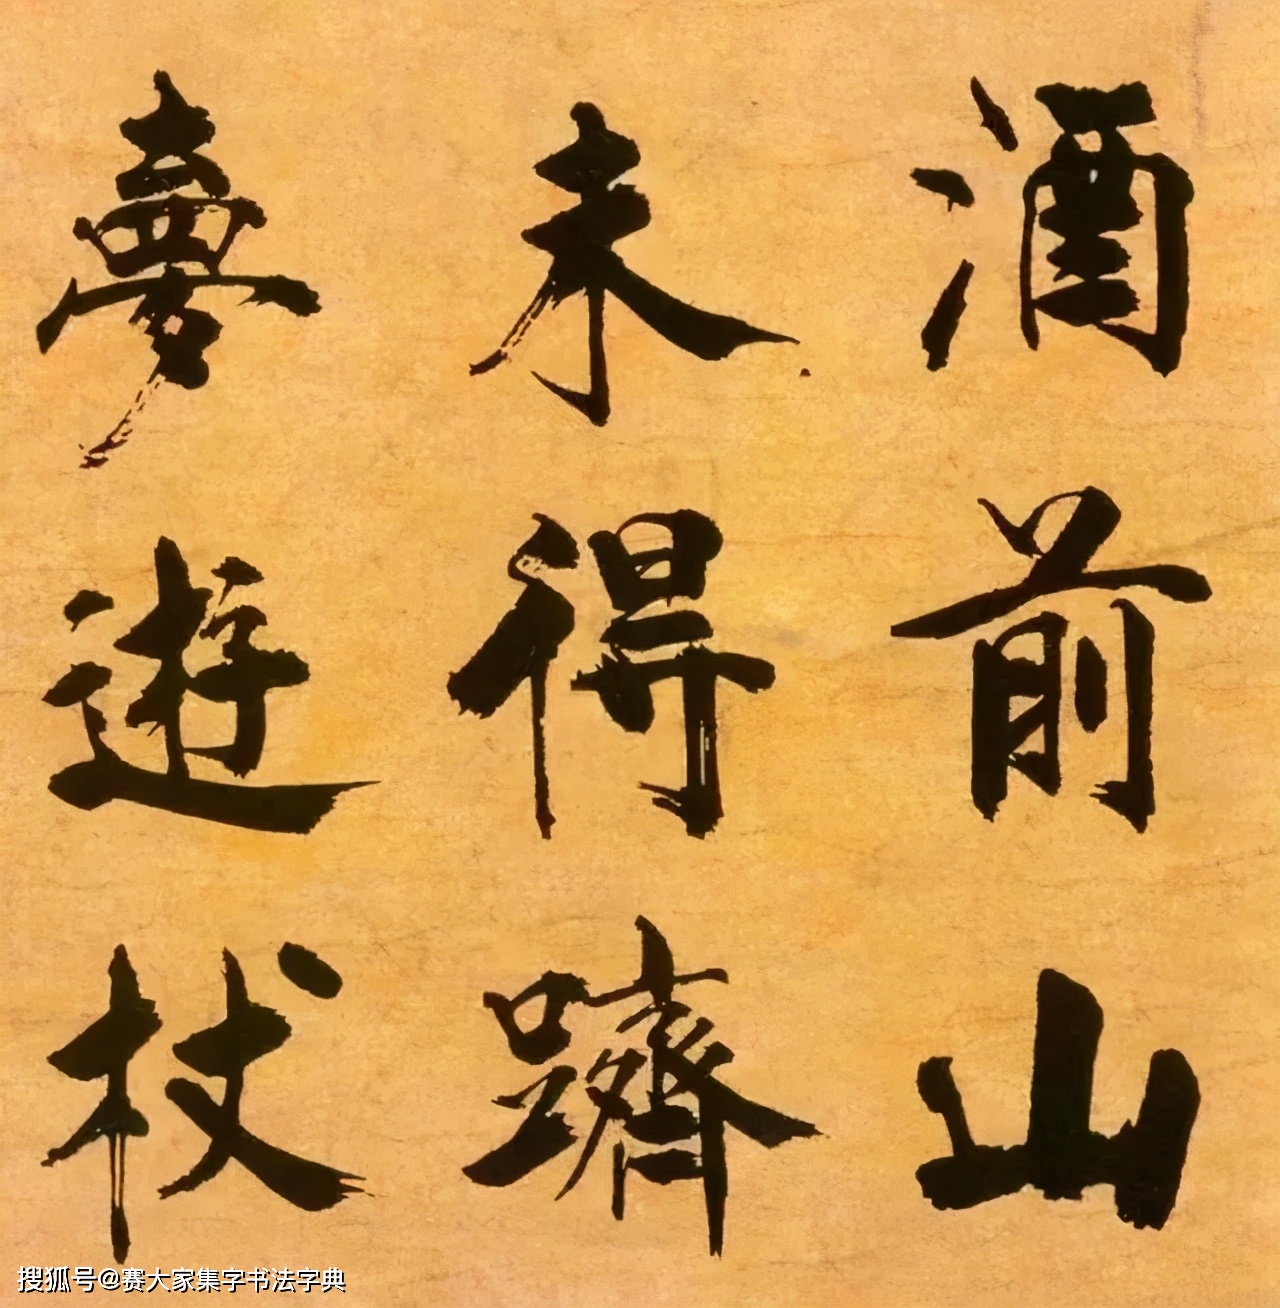 酒前山
未得躋
夢遊杖
搜狐号@赛大家集字书法字典